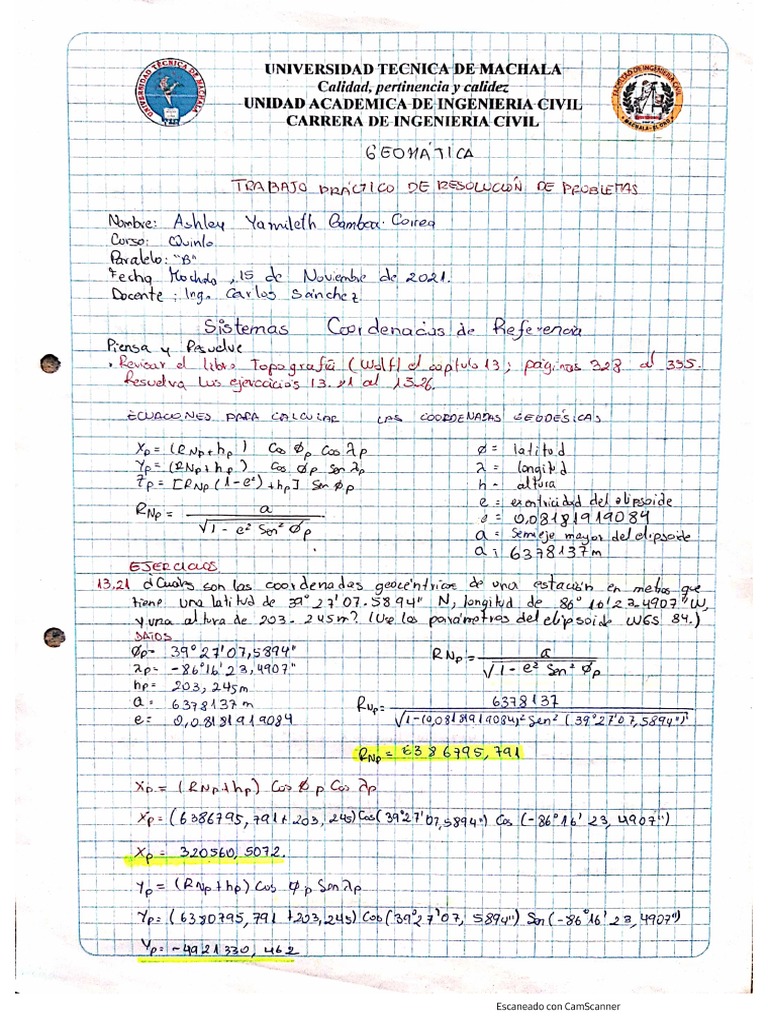 UNIVERSIDAD TECNICA DE MACHALA
Calidad, pertinencia y calidez
UNIDAD ACADEMICA DE INGENIERIA CIVIL
CARRERA DE INGENIERIA CIVIL
GEOMÁTICA
TRABAJO PRÁCTICO DE RESOLUCIÓN DE PROBLEMAS
Nombre: Ashley Yamileth Gamboa Correa
Curso: Quinto
Paralelo: "B"
Fecha Machala, 15 de Noviembre de 2021.
Docente: Ing. Carlos Sánchez
Sistemas Coordenadas de Referencia
Piensa y Resuelve
• Revisar el libro Topografía (Wolf) el capítulo 13, páginas 328 al 335.
Resuelva los ejercicios 13.21 al 13.26.
ECUACIONES PARA CALCULAR LAS COORDENADAS GEODÉSICAS
Xp = (RNp + hp) Cos Φp Cos λp
Yp = (RNp + hp) Cos Φp Sen λp
Zp = [RNp (1 - e²) + hp] Sen Φp
RNp = a / √(1 - e² Sen² Φp)
Φ = latitud
λ = longitud
h = altura
e = exentricidad del elipsoide
e = 0,08181919084
a = Semieje mayor del elipsoide
a: 6378137 m
EJERCICIOS
13.21 ¿Cuales son las coordenadas geocéntricas de una estación en metros que
tiene una latitud de 39°27'07.5894" N, longitud de 86°16'23.4907"W,
y una altura de 203.245m? (Use los parámetros del elipsoide WGS 84.)
DATOS
Φp = 39°27'07,5894"
λp = -86°16'23,4907"
hp = 203,245m
a = 6378137m
e = 0,08181919084
RNp = a / √(1 - e² Sen² Φp)
RNp = 6378137 / √(1-(0,08181919084)² Sen² (39°27'07,5894"))
RNp = 6386795,791
Xp = (RNp + hp) Cos Φp Cos λp
Xp = (6386795,791 + 203,245) Cos (39°27'07,5894") Cos (-86°16'23,4907")
Xp = 320560,5072.
Yp = (RNp + hp) Cos Φp Sen λp
Yp = (6380795,791 + 203,245) Cos (39°27'07,5894") Sen (-86°16'23,4907)
Yp = -4921330,462
Escaneado con CamScanner